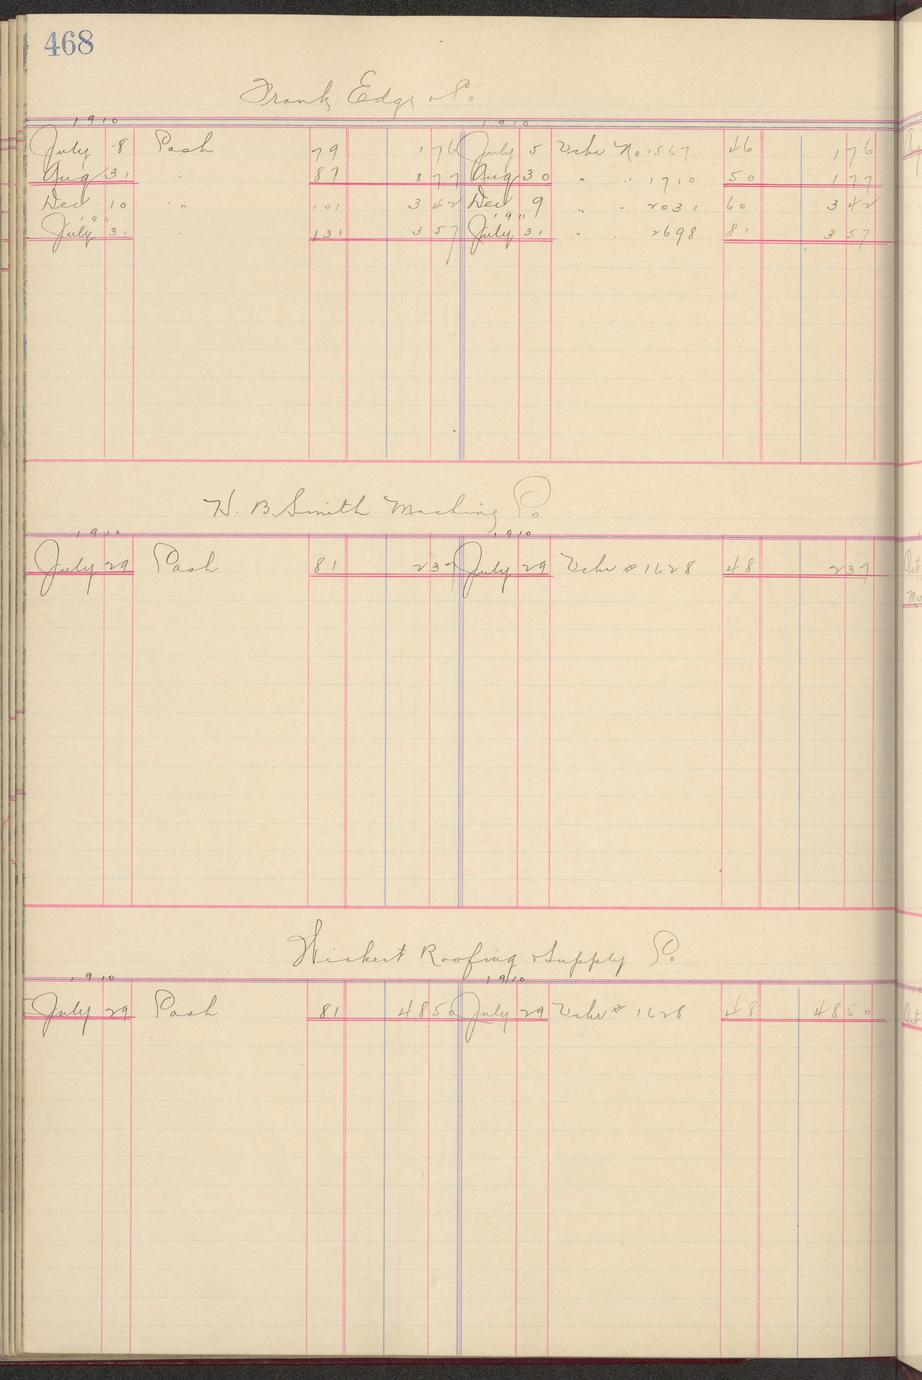 468
Frank Edge Co.
1910 1910
July 8 Cash 79 176 July 5 Vchr No 1567 46 176
Aug 31 " 87 177 Aug 30 " " 1710 50 177
Dec 10 " " 101 342 Dec 9 " " 2031 60 342
1911 1911
July 31 " 131 357 July 31 " " 2698 81 357
H. B. Smith Machine Co
1910 1910
July 29 Cash 81 237 July 29 Vchr # 1628 48 237
Roofing & Supply Co.
1910 1910
July 29 Cash 81 4850 July 29 Vchr # 1628 48 4850